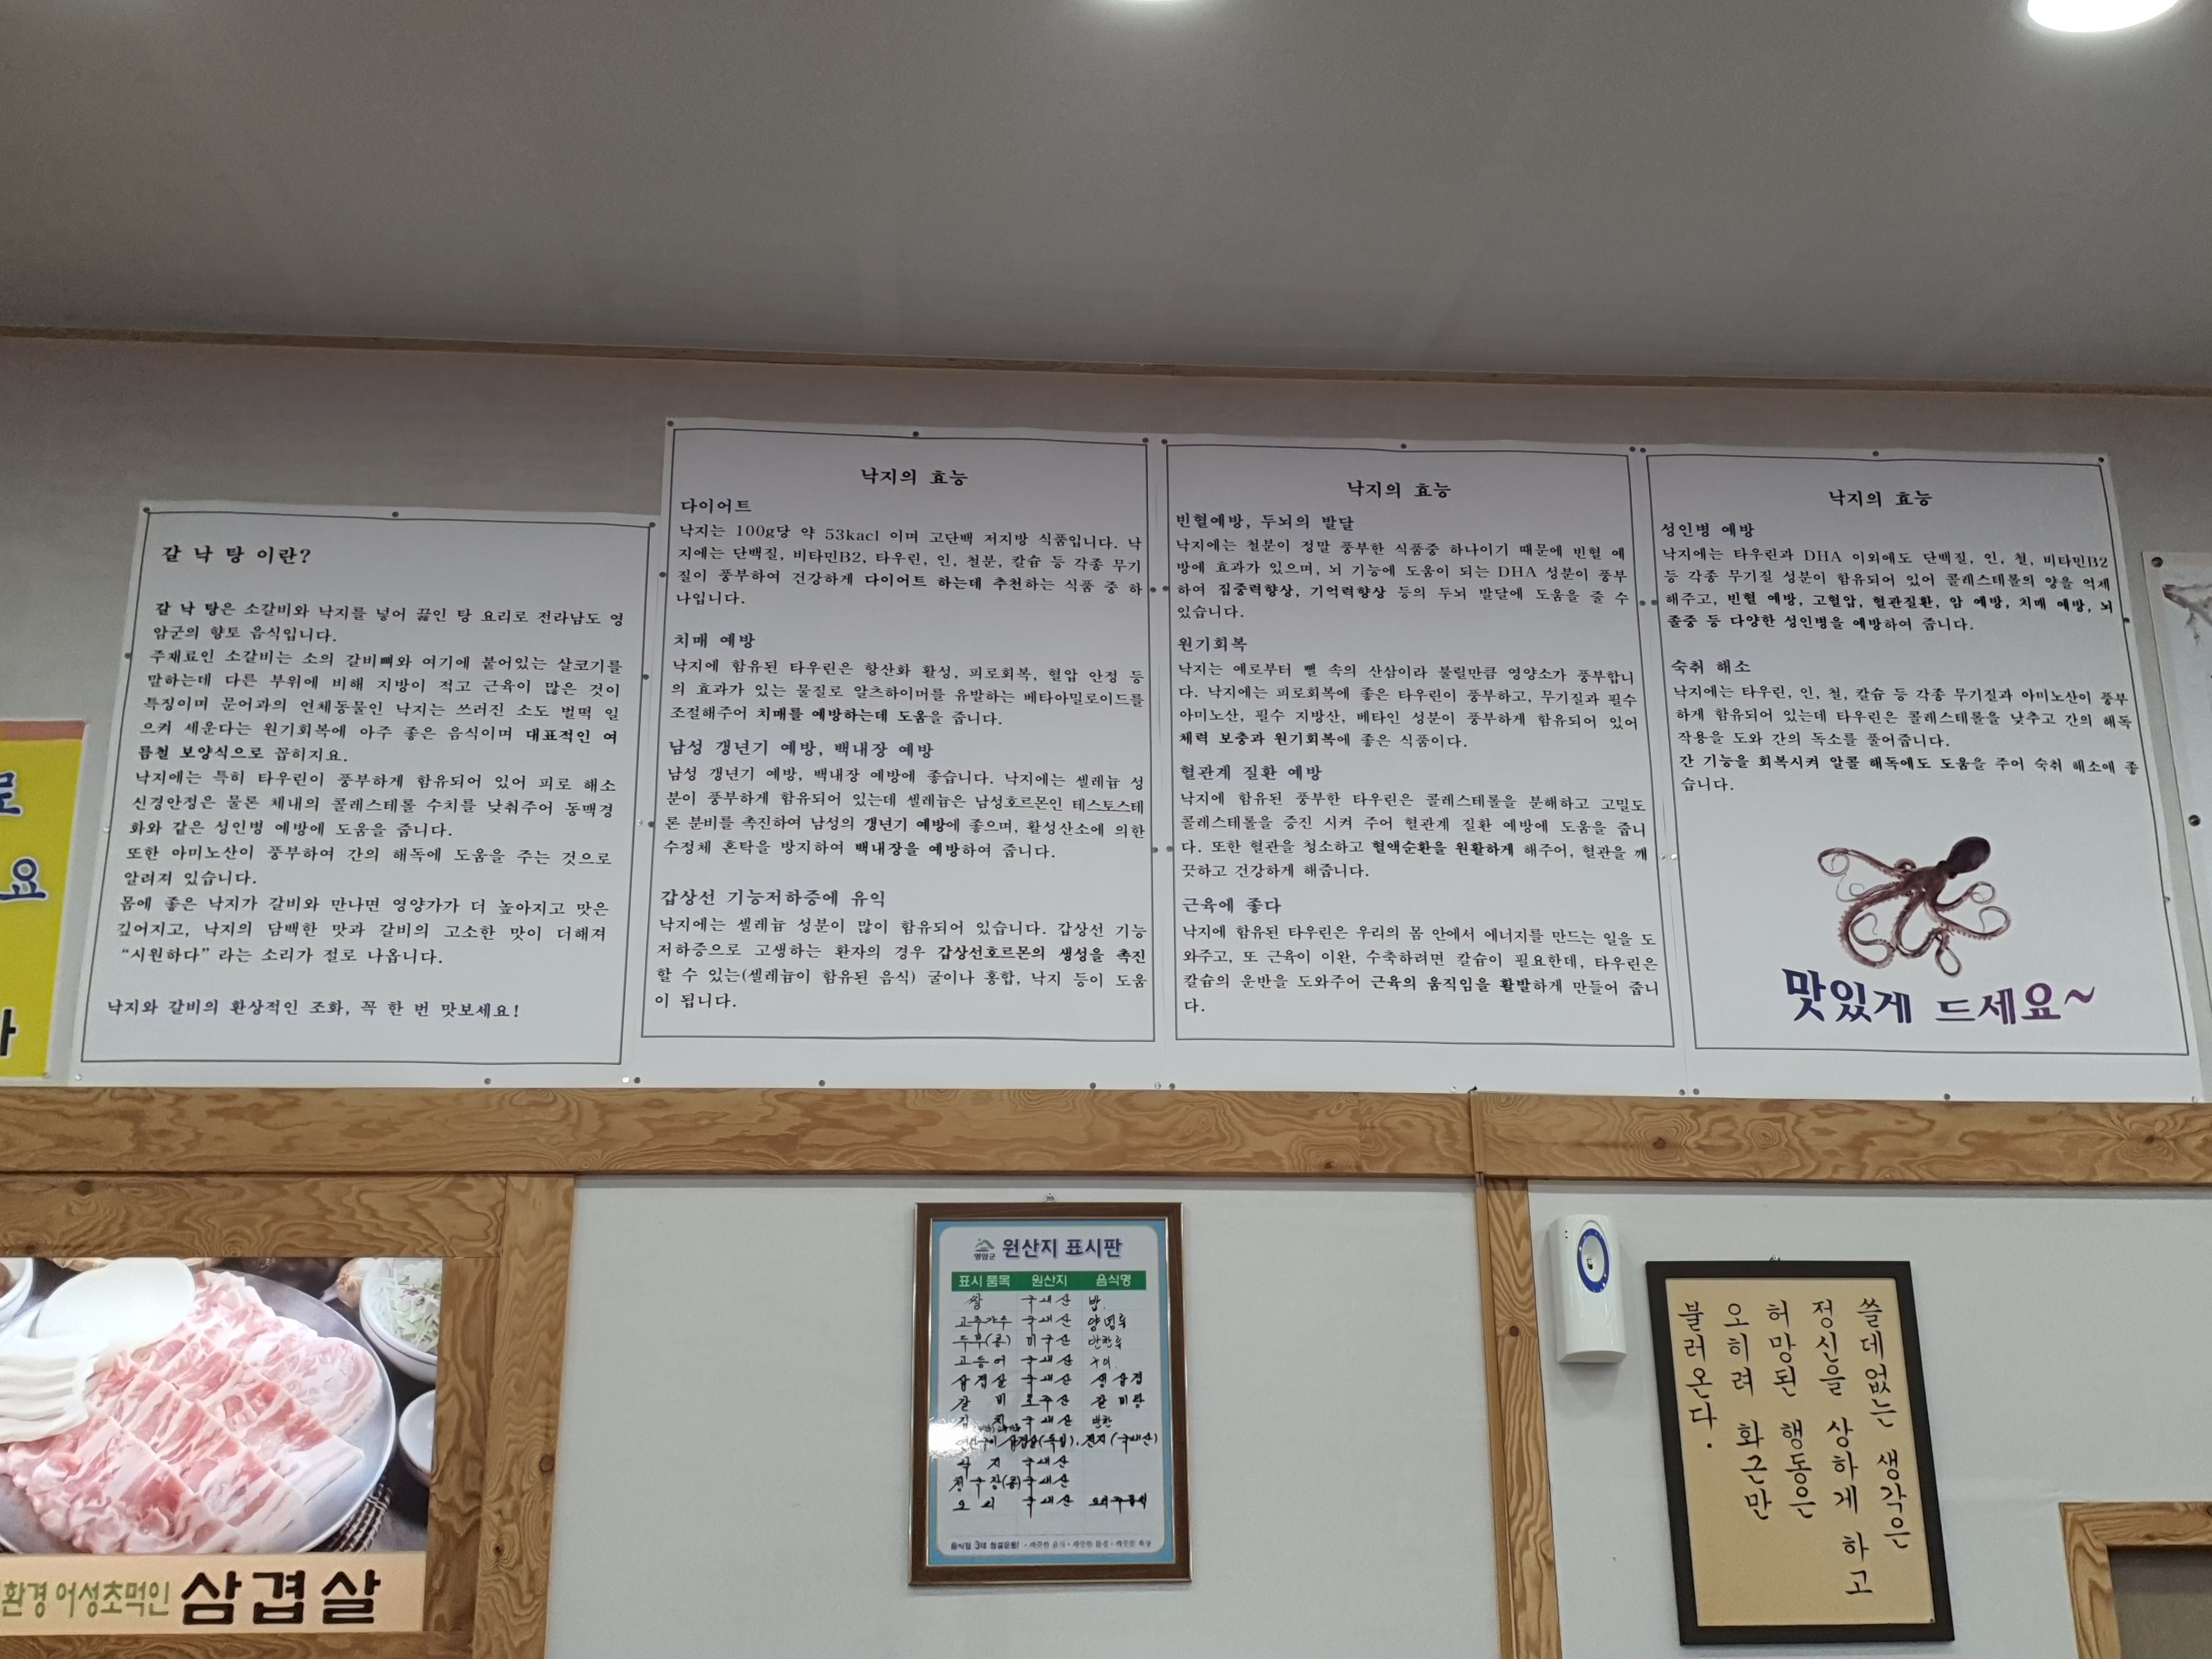 로
요
갈 낙 탕 이란?
갈 낙 탕은 소갈비와 낙지를 넣어 끓인 탕 요리로 전라남도 영
암군의 향토 음식입니다.
주재료인 소갈비는 소의 갈비뼈와 여기에 붙어있는 살코기를
말하는데 다른 부위에 비해 지방이 적고 근육이 많은 것이
특징이며 문어과의 연체동물인 낙지는 쓰러진 소도 벌떡 일
으켜 세운다는 원기회복에 아주 좋은 음식이며 대표적인 여
름철 보양식으로 꼽히지요.
낙지에는 특히 타우린이 풍부하게 함유되어 있어 피로 해소
신경안정은 물론 체내의 콜레스테롤 수치를 낮춰주어 동맥경
화와 같은 성인병 예방에 도움을 줍니다.
또한 아미노산이 풍부하여 간의 해독에 도움을 주는 것으로
알려져 있습니다.
몸에 좋은 낙지가 갈비와 만나면 영양가가 더 높아지고 맛은
깊어지고, 낙지의 담백한 맛과 갈비의 고소한 맛이 더해져
“시원하다” 라는 소리가 절로 나옵니다.
낙지와 갈비의 환상적인 조화, 꼭 한 번 맛보세요!
낙지의 효능
다이어트
낙지는 100g당 약 53kacl 이며 고단백 저지방 식품입니다. 낙
지에는 단백질, 비타민B2, 타우린, 인, 철분, 칼슘 등 각종 무기
질이 풍부하여 건강하게 다이어트 하는데 추천하는 식품 중 하
나입니다.
치매 예방
낙지에 함유된 타우린은 항산화 활성, 피로회복, 혈압 안정 등
의 효과가 있는 물질로 알츠하이머를 유발하는 베타아밀로이드를
조절해주어 치매를 예방하는데 도움을 줍니다.
남성 갱년기 예방, 백내장 예방
남성 갱년기 예방, 백내장 예방에 좋습니다. 낙지에는 셀레늄 성
분이 풍부하게 함유되어 있는데 셀레늄은 남성호르몬인 테스토스테
론 분비를 촉진하여 남성의 갱년기 예방에 좋으며, 활성산소에 의한
수정체 혼탁을 방지하여 백내장을 예방하여 줍니다.
갑상선 기능저하증에 유익
낙지에는 셀레늄 성분이 많이 함유되어 있습니다. 갑상선 기능
저하증으로 고생하는 환자의 경우 갑상선호르몬의 생성을 촉진
할 수 있는(셀레늄이 함유된 음식) 굴이나 홍합, 낙지 등이 도움
이 됩니다.
낙지의 효능
빈혈예방, 두뇌의 발달
낙지에는 철분이 정말 풍부한 식품중 하나이기 때문에 빈혈 예
방에 효과가 있으며, 뇌 기능에 도움이 되는 DHA 성분이 풍부
하여 집중력향상, 기억력향상 등의 두뇌 발달에 도움을 줄 수
있습니다.
원기회복
낙지는 예로부터 뻘 속의 산삼이라 불릴만큼 영양소가 풍부합니
다. 낙지에는 피로회복에 좋은 타우린이 풍부하고, 무기질과 필수
아미노산, 필수 지방산, 베타인 성분이 풍부하게 함유되어 있어
체력 보충과 원기회복에 좋은 식품이다.
혈관계 질환 예방
낙지에 함유된 풍부한 타우린은 콜레스테롤을 분해하고 고밀도
콜레스테롤을 증진 시켜 주어 혈관계 질환 예방에 도움을 줍니
다. 또한 혈관을 청소하고 혈액순환을 원활하게 해주어, 혈관을 깨
끗하고 건강하게 해줍니다.
근육에 좋다
낙지에 함유된 타우린은 우리의 몸 안에서 에너지를 만드는 일을 도
와주고, 또 근육이 이완, 수축하려면 칼슘이 필요한데, 타우린은
칼슘의 운반을 도와주어 근육의 움직임을 활발하게 만들어 줍니
다.
낙지의 효능
성인병 예방
낙지에는 타우린과 DHA 이외에도 단백질, 인, 철, 비타민B2
등 각종 무기질 성분이 함유되어 있어 콜레스테롤의 양을 억제
해주고, 빈혈 예방, 고혈압, 혈관질환, 암 예방, 치매 예방, 뇌
졸중 등 다양한 성인병을 예방하여 줍니다.
숙취 해소
낙지에는 타우린, 인, 철, 칼슘 등 각종 무기질과 아미노산이 풍부
하게 함유되어 있는데 타우린은 콜레스테롤을 낮추고 간의 해독
작용을 도와 간의 독소를 풀어줍니다.
간 기능을 회복시켜 알콜 해독에도 도움을 주어 숙취 해소에 좋
습니다.
맛있게 드세요~
환경 어성초먹인 삼겹살
영암군 원산지 표시판
표시 품목 원산지 음식명
쌀 국내산 밥
고추가루 국내산 양념류
두부(콩) 미국산 반찬류
고등어 국내산 구이
삼겹살 국내산 생삼겹
갈비 호주산 갈비탕
김치 국내산 반찬
삼겹살(독일), 전지(국내산)
낙지 국내산
청국장(콩) 국내산
오리 국내산
쓸데없는 생각은
정신을 상하게 하고
허망된 행동은
오히려 화근만
불러온다.